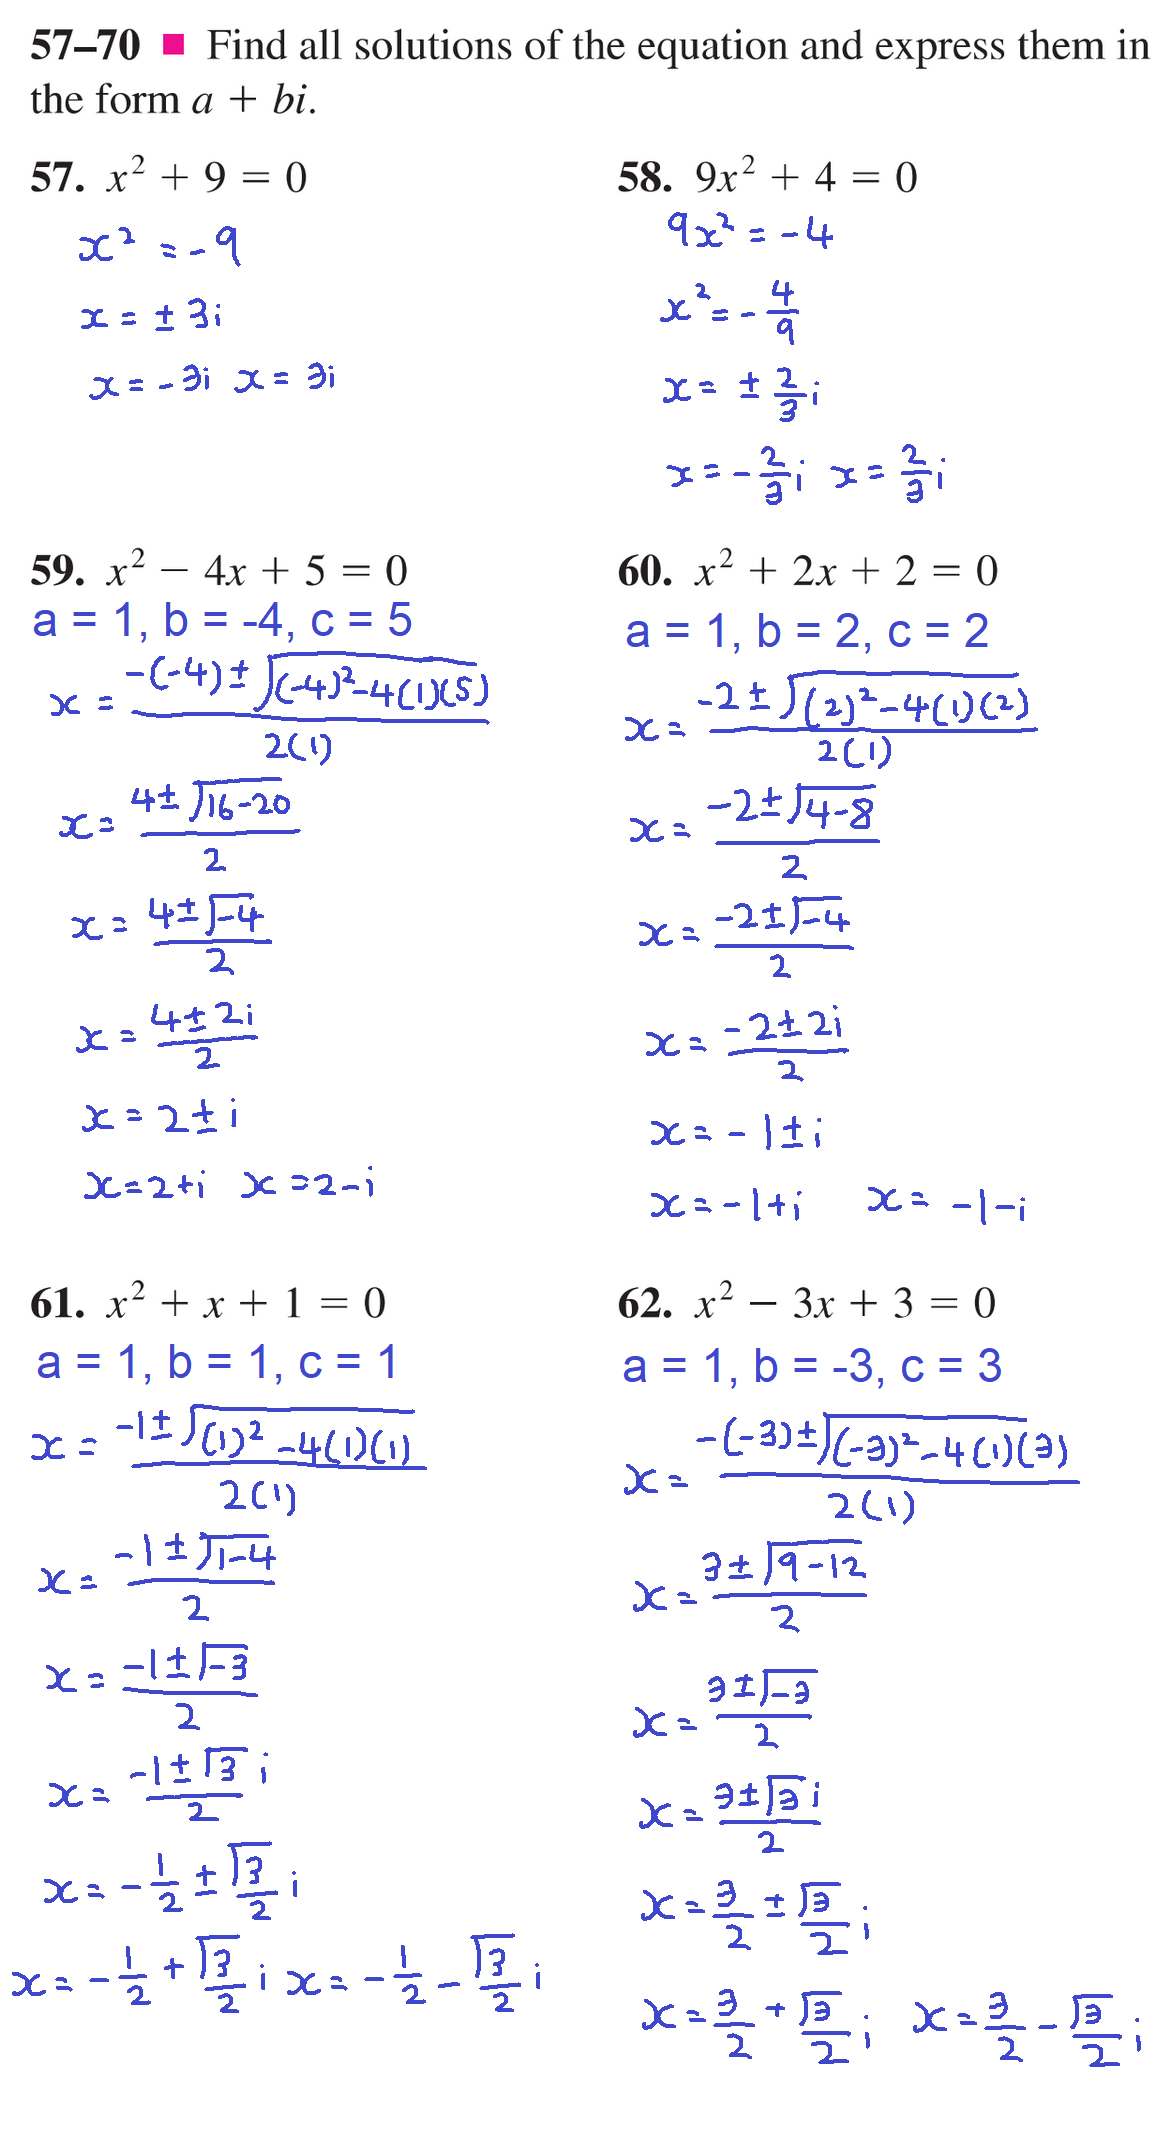 57–70 ■ Find all solutions of the equation and express them in
the form a + bi.
57. x² + 9 = 0
x² = -9
x = ± 3i
x = -3i x = 3i
58. 9x² + 4 = 0
9x² = -4
x² = - 4/9
x = ± 2/3 i
x = - 2/3 i x = 2/3 i
59. x² − 4x + 5 = 0
a = 1, b = -4, c = 5
x = (-(-4) ± √((-4)² - 4(1)(5))) / 2(1)
x = (4 ± √(16-20)) / 2
x = (4 ± √-4) / 2
x = (4 ± 2i) / 2
x = 2 ± i
x = 2+i x = 2-i
60. x² + 2x + 2 = 0
a = 1, b = 2, c = 2
x = (-2 ± √((2)² - 4(1)(2))) / 2(1)
x = (-2 ± √(4-8)) / 2
x = (-2 ± √-4) / 2
x = (-2 ± 2i) / 2
x = -1 ± i
x = -1+i x = -1-i
61. x² + x + 1 = 0
a = 1, b = 1, c = 1
x = (-1 ± √((1)² - 4(1)(1))) / 2(1)
x = (-1 ± √(1-4)) / 2
x = (-1 ± √-3) / 2
x = (-1 ± √3 i) / 2
x = - 1/2 ± √3/2 i
x = - 1/2 + √3/2 i x = - 1/2 - √3/2 i
62. x² − 3x + 3 = 0
a = 1, b = -3, c = 3
x = (-(-3) ± √((-3)² - 4(1)(3))) / 2(1)
x = (3 ± √(9-12)) / 2
x = (3 ± √-3) / 2
x = (3 ± √3 i) / 2
x = 3/2 ± √3/2 i
x = 3/2 + √3/2 i x = 3/2 - √3/2 i